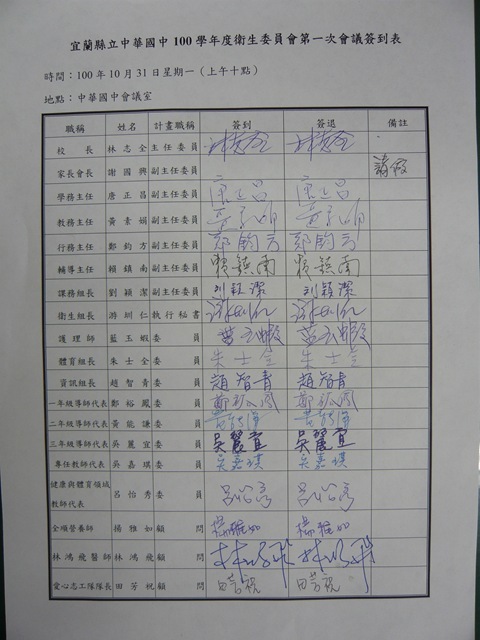 宜蘭縣立中華國中100學年度衛生委員會第一次會議簽到表
時間：100年10月31日星期一（上午十點）
地點：中華國中會議室
職稱 姓名 計畫職稱 簽到 簽退 備註
校長 林志全 主任委員 林志全 林志全
家長會長 謝國興 副主任委員 請假
學務主任 唐正昌 副主任委員 唐正昌 唐正昌
教務主任 黃素娟 副主任委員 黃素娟 黃素娟
行務主任 鄭鈞方 副主任委員 鄭鈞方 鄭鈞方
輔導主任 賴鎮南 副主任委員 賴鎮南 賴鎮南
課務組長 劉穎潔 副主任委員 刘穎潔 刘穎潔
衛生組長 游圳仁 執行秘書 游圳仁 游圳仁
護理師 藍玉蝦 委員 藍玉蝦 藍玉蝦
體育組長 朱士全 委員 朱士全 朱士全
資訊組長 趙智青 委員 趙智青 趙智青
一年級導師代表 鄭裕鳳 委員 鄭裕鳳 鄭裕鳳
二年級導師代表 黃能謙 委員 黃能謙 黃能謙
三年級導師代表 吳麗宜 委員 吳麗宜 吳麗宜
專任教師代表 吳嘉琪 委員 吳嘉琪 吳嘉琪
健康與體育領域
教師代表 呂怡秀 委員 呂怡秀 呂怡秀
全順營養師 楊雅如 顧問 楊雅如 楊雅如
林鴻飛醫師 林鴻飛 顧問 林鴻飛 林鴻飛
愛心志工隊隊長 田芳祝 顧問 田芳祝 田芳祝